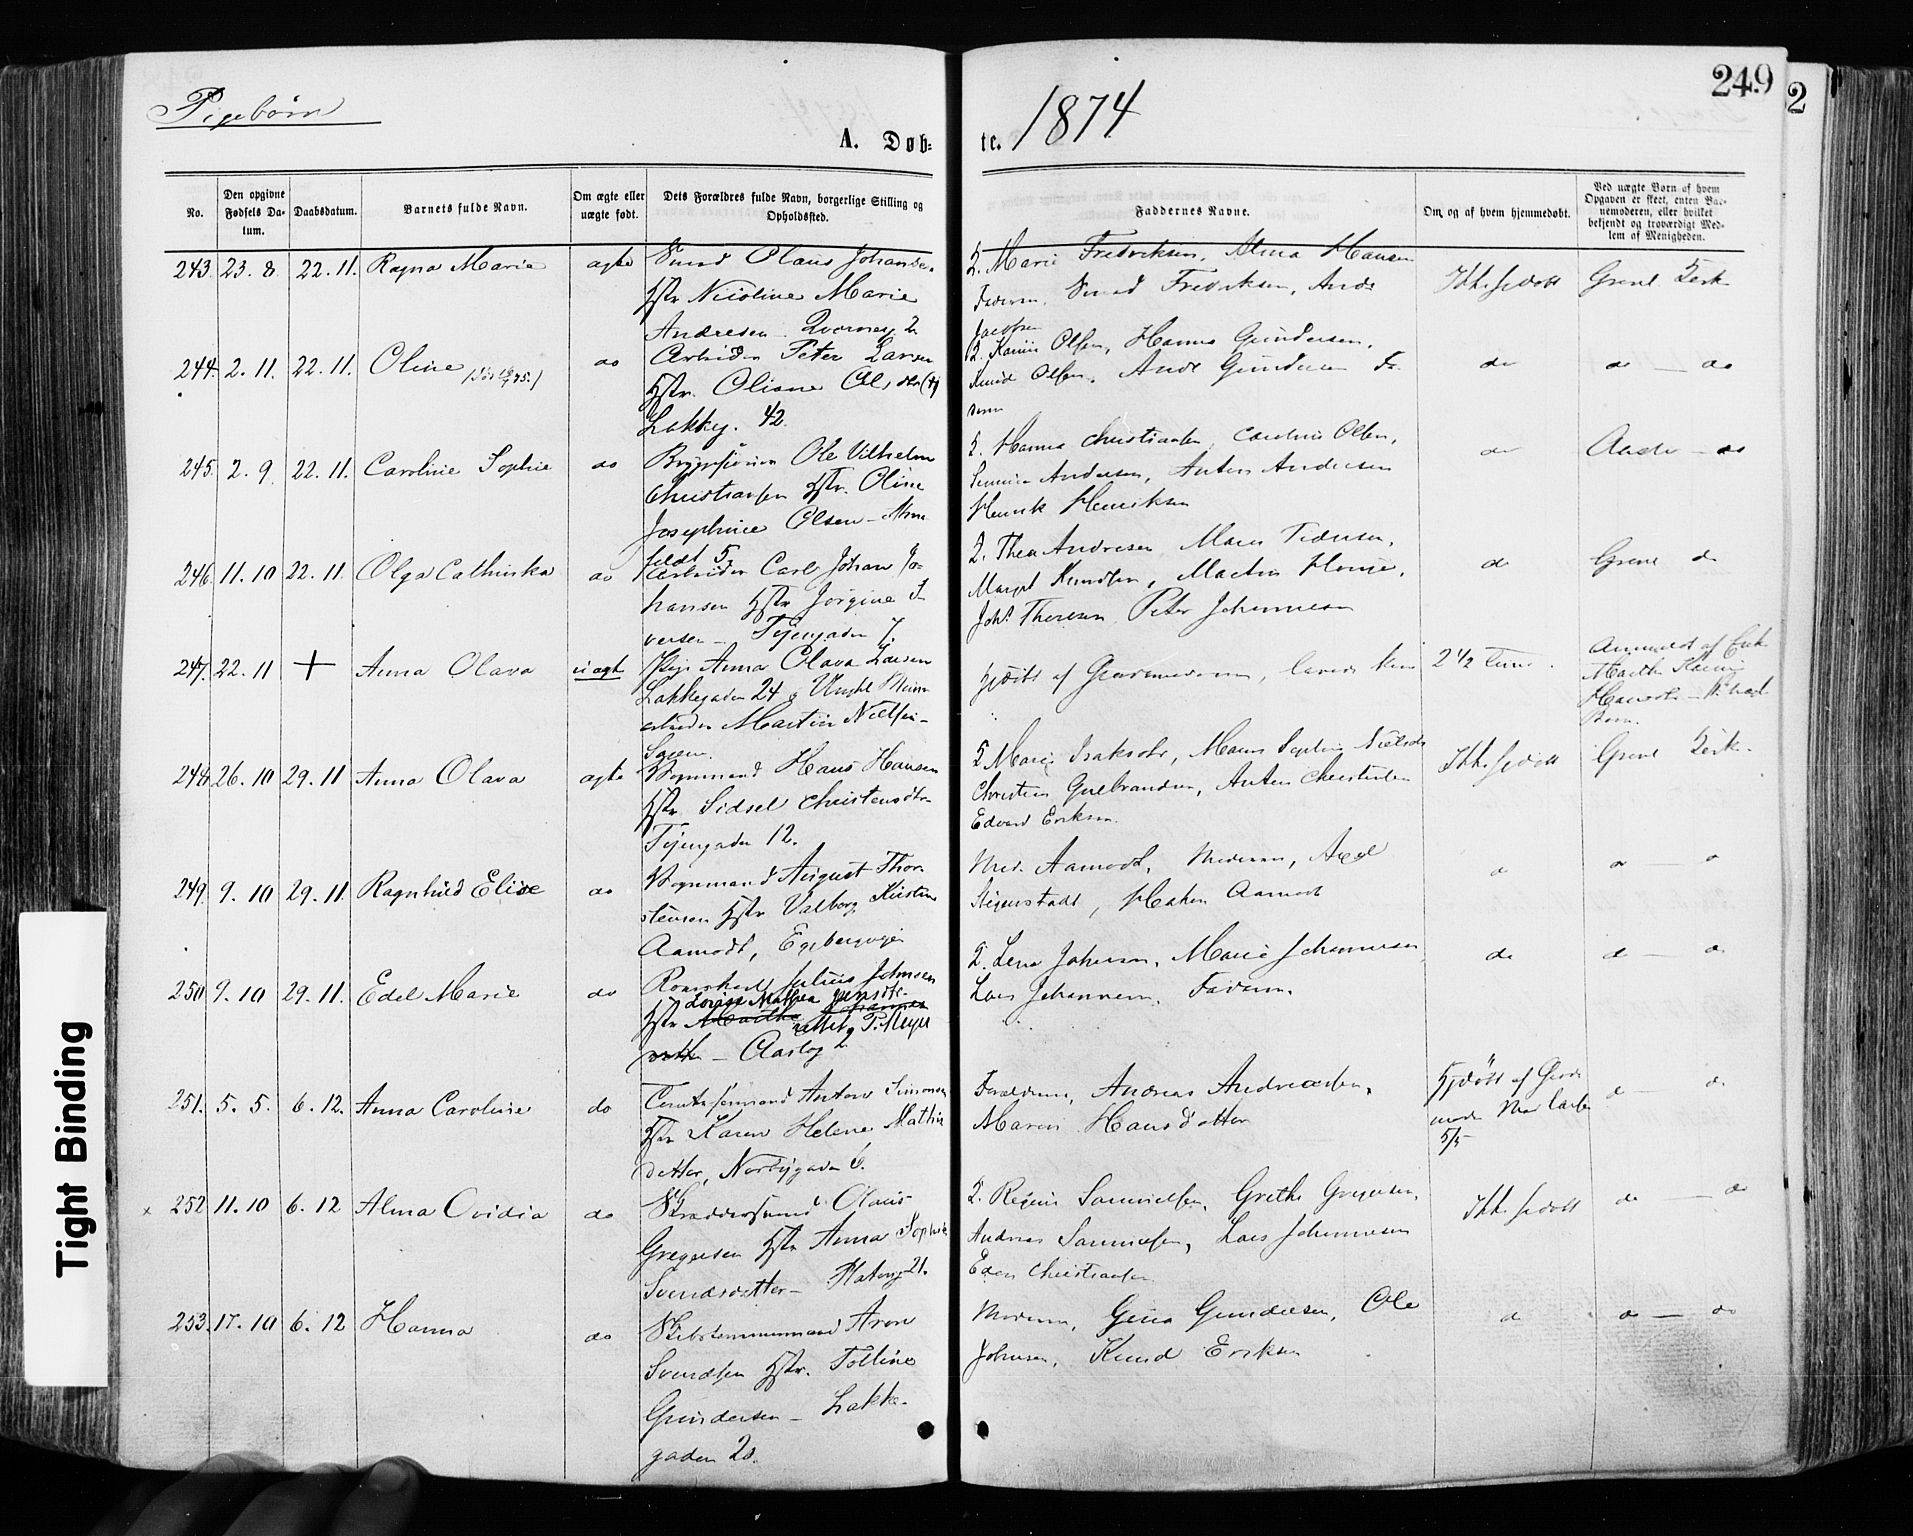 249
2
Pigebørn
A. Døb-
te. 1874
No.
Den opgivne Fødsels Da-tum.
Daabsdatum.
Barnets fulde Navn.
Om ægte eller uægte født.
Dets Forældres fulde Navn, borgerlige Stilling og Opholdssted.
Faddernes Navne.
Om og af hvem hjemmedøbt.
Ved uægte Børn af hvem Opgaven er skeet, enten Bar-nemoderen, eller hvilket bekjendt og troværdigt Med-lem af Menigheden.
243. 23. 8. 22. 11. Ragna Maria ægte
Smed Olaus Johanse.
Hstr Nicoline Marie
Andresen
2. Marie Fredriksen, Alma Hansen
Faderen, Smed Fredriksen, Ands
Jacobsen
Ikke hjdøbt
Grønl Kirk
244. 2. 11. 22. 11. Oline do
Arbeider Peter Larsen
Hstr. Oliane Olsdtr
Lakkeg. 42.
2. Karine Olsen, Hanna Gundersen,
Knud Olsen, Ands Gundersen Fa-
deren
do
do — do
245. 2. 9. 22. 11. Caroline Sophie do
Ole Vilhelm
Christiansen Hstr. Oline
Josephine Olsen - Alme
feldt 5.
2. Hanna Christiansen, Caroline Olsen,
Andersen, Anton Andersen
Henrik Henriksen
do
do
246. 11. 10 22. 11. Olga Cathinka do
Arbeider Carl Johan Jo-
hansen Hstr Jørgine I-
versen - Tøiengaden 7.
2. Thea Andresen, Maren Pedersen,
Margit Knudsen, Martin
Johs Thoresen, Peter Johannesen
do
Grønl do
247. 22. 11 + Anna Olava uægte
Pige Anna Olava Larsen
Lakkegaden 24 g Ungkl Stein
arbeider Martin Nielsen -
Hjdøbt af Gjordemoderen, levede kun 2 1/2 Time.
Anmeldt af Enke
Marthe Karine
248. 26. 10 29. 11 Anna Olava ægte
Vognmand Hans Hansen
Hstr Sidsel Christensdtr
Tøiengaden 12.
2 Marie Isaksdtr, Maren Sophie Nielsdtr
Christian Gulbrandsen, Anton Christensen
Edvard Eriksen.
Ikke hjdøbt
Grønl Kirk.
249. 9. 10 29. 11. Ragnhild Elise do
Vognmand August Thor-
stensen Hstr Valborg Kirstine
Aamodt, Egebergveien
Mad. Aamodt, Moderen, Axel
Hakon Aamodt
do
do — do
250. 9. 10 29. 11. Edel Marie do
Julius Johnsen
Lovise Mathea Jensdtr.
Hstr Marthe Johannes
rettet g P. Meyer
datter - Aaslog 2
2. Lena Johnsen, Marie Johannesen
Lars Johannesen, Faderen.
do
do — do
251. 5. 5. 6. 12. Anna Caroline do
Anton Simonsen
Hstr Karen Helene Mathis
datter, Norbygaden 6.
Forældrene, Andreas Andreassen,
Maren Hansdatter
Hjdøbt af Gjorde
moder Mad Larsen
5/5
do — do
x 252 11. 10 6. 12 Alma Ovidia do
Skræddersvend Olaus
Gregersen Hstr Anna Sophie
Svendsdatter - Platoug 21.
2. Regine Samuelsen, Grethe Gregersen,
Andreas Samuelsen, Lars Johannesen
Christiansen
Ikke hjdøbt
do — do
253. 17. 10 6. 12 Hanna do
Skibstømmermand Aron
Svendsen Hstr. Tolline
Gundersen - Lakke-
gaden 20.
Moderen, Gina Gundersen, Ole
Johnsen, Knud Eriksen
do
do — do
Tight Binding